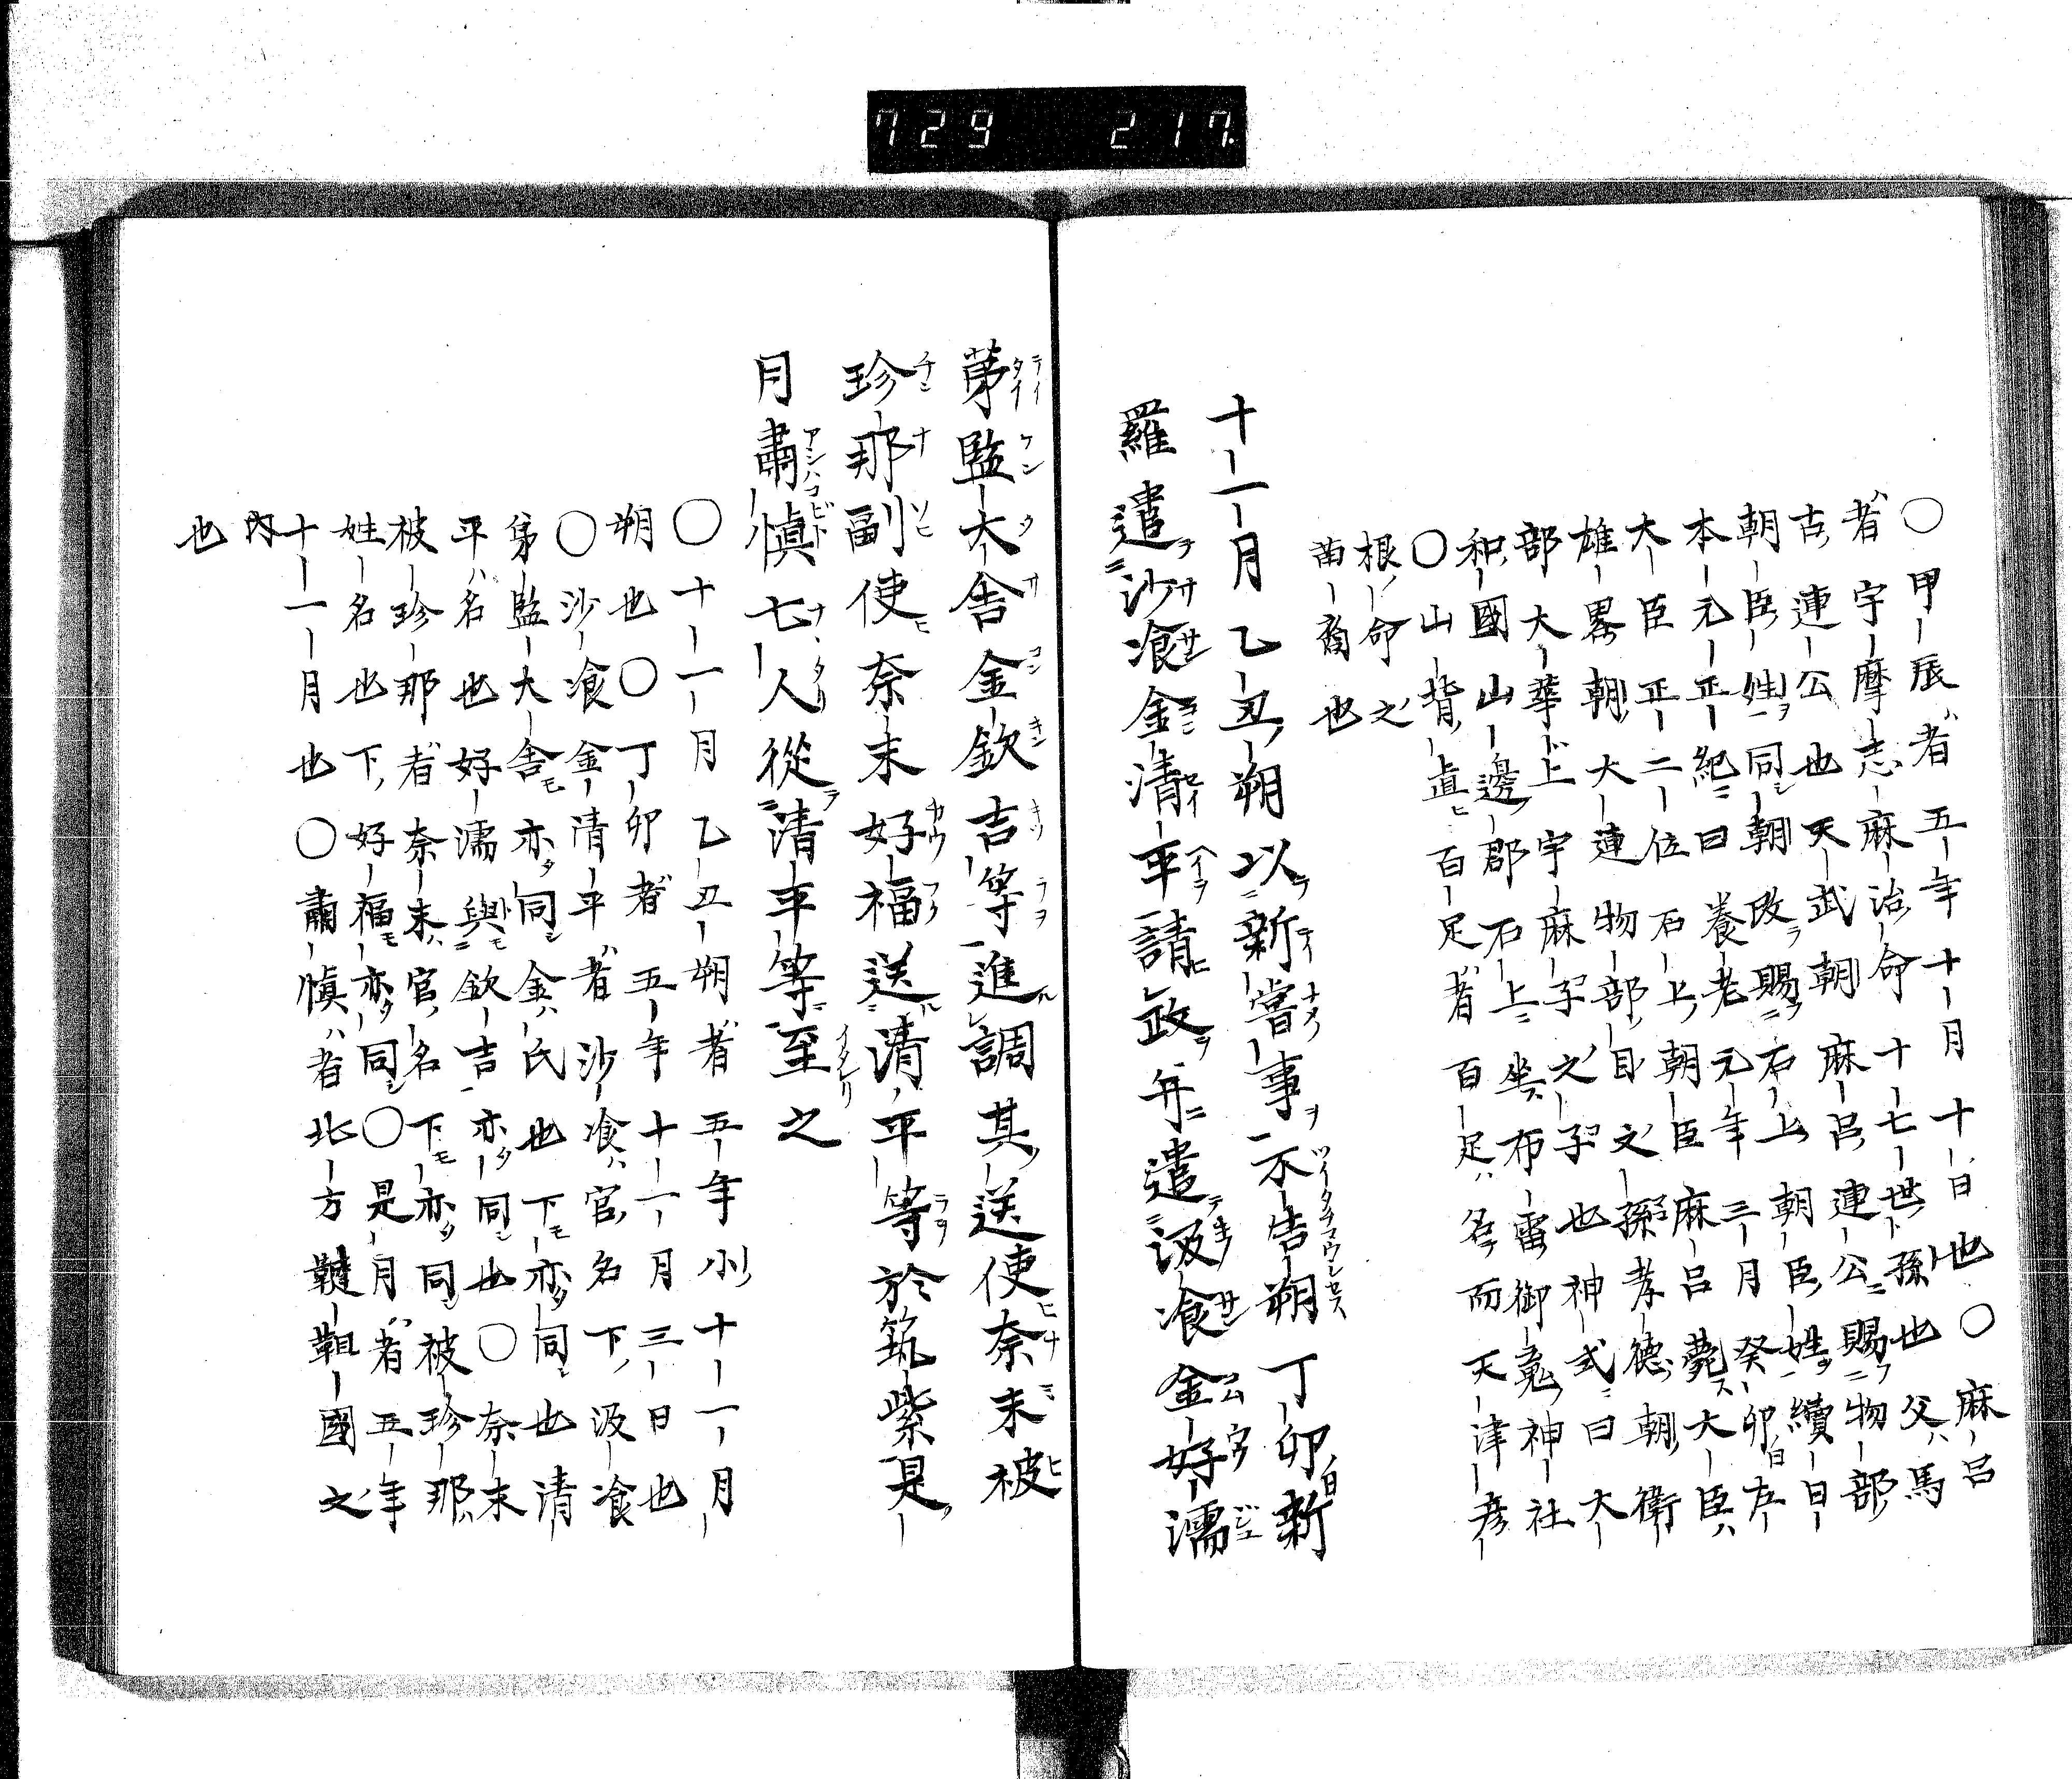 729 217.
〇甲辰者五年十月十日也〇麻呂
者宇摩志麻治命十七世孫也父馬
古連公也天武朝麻呂連公賜物部
朝臣姓同朝改賜石上朝臣姓續日
本元正紀曰養老元年三月癸卯日左
大臣正二位石上朝臣麻呂薨大臣
雄畧朝大連物部目之孫孝德朝衛
部大華上宇麻子之子也神式曰大
和國山邊郡石上坐布雷御䰟神社
〇山背直百足者百足名而天津彦
根命之
苗裔也
十一月乙丑朔以新嘗事不告朔丁卯日新
羅遣沙飡金清平請政并遣汲飡金好濡
苐監大舎金欽吉等進調其送使奈末被
珍那副使奈末好福送清平等於筑紫是
月肅慎七人從清平等至之
〇十一月乙丑朔者五年小十一月
朔也〇丁卯者五年十一月三日也
〇沙飡金清平者沙飡官名下汲飡
第監大舎亦同金氏也下亦同也清
平名也好濡與欽吉亦同也〇奈末
被珍那者奈末官名下亦同被珍那
姓名也下好福亦同〇是月者五年
十一月也〇肅慎者北方韃靼國之
内
也